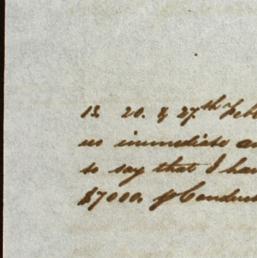 13. 20. & 27th Feb
us immediate an
to say that I hav
$7000, p Conduc